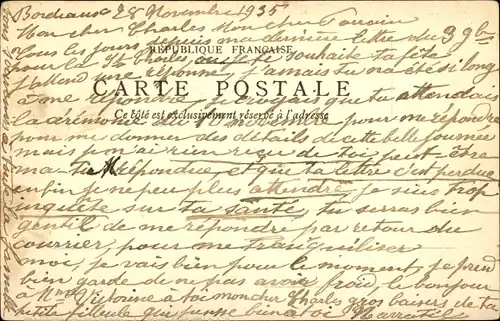 Bordeaux 28 Novembre 1935
Mon cher Charles Mon cher Parrain
Tous les jours depuis ma dernière lettre du 3 9bre
pour la St Charles, ou je te souhaite ta fête
RÉPUBLIQUE FRANÇAISE
J'attend une réponse, jamais tu n'a été si long
à me répondre, je croyais que tu attendais
CARTE POSTALE
la cérémonie du 11 novembre pour me répondre
Ce côté est exclusivement réservé à l'adresse
pour me donner des détails de cette belle journée
mais non ai rien reçu de toi, peut-être
m'a tu répondue, et que ta lettre c'est perdue
enfin je ne peu plus attendre je suis trop
inquète sur ta santé, tu seras bien
gentil de me répondre par retour du
courrier, pour me tranquiliser
moi, je vais bien pour le moment, je prend
bien garde de ne pas avoir froid, le bonjour
à Mme Victorine à toi mon cher Charles gros baisers de ta
petite filleule qui pense bien à toi